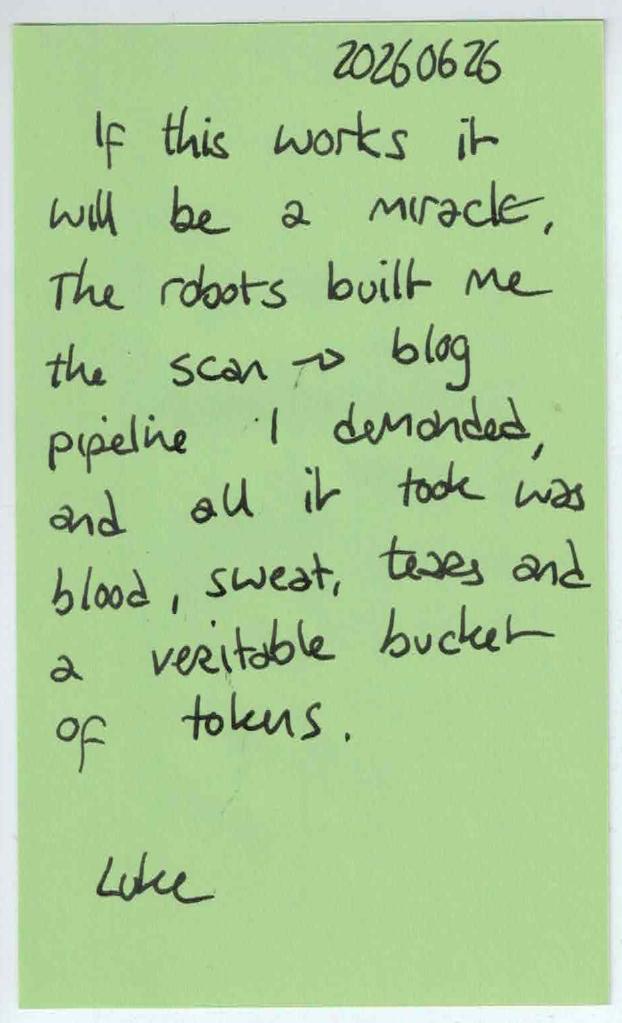 20260626
If this works it
will be a miracle.
The robots built me
the scan → blog
pipeline I demanded,
and all it took was
blood, sweat, tears and
a veritable bucket
of tokens.
Luke